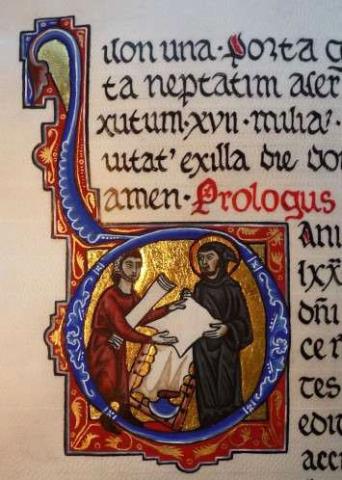 ulon una · Porta g
ta neptatim aser
xutum · xvii · milia
uitat' exilla die do
amen · Prologus
ANI
lxx
dñi
cer
tes
edit
acci